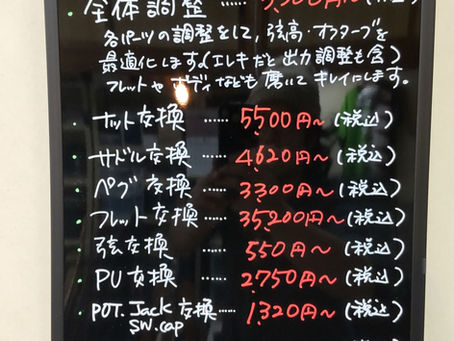 ・全体調整 …… 5,500円〜 (税込)
各パーツの調整をして、弦高・オクターブを
最適化します。(エレキだと出力調整も含)
フレットや ボディなども磨いてキレイにします。
・ナット交換 …… 5,500円〜(税込)
・サドル交換 …… 4,620円〜(税込)
・ペグ交換 …… 3,300円〜(税込)
・フレット交換 …… 35,200円〜(税込)
・弦交換 …… 550円〜(税込)
・PU交換 …… 2,750円〜(税込)
・POT. Jack 交換 …… 1,320円〜(税込)
SW. cap